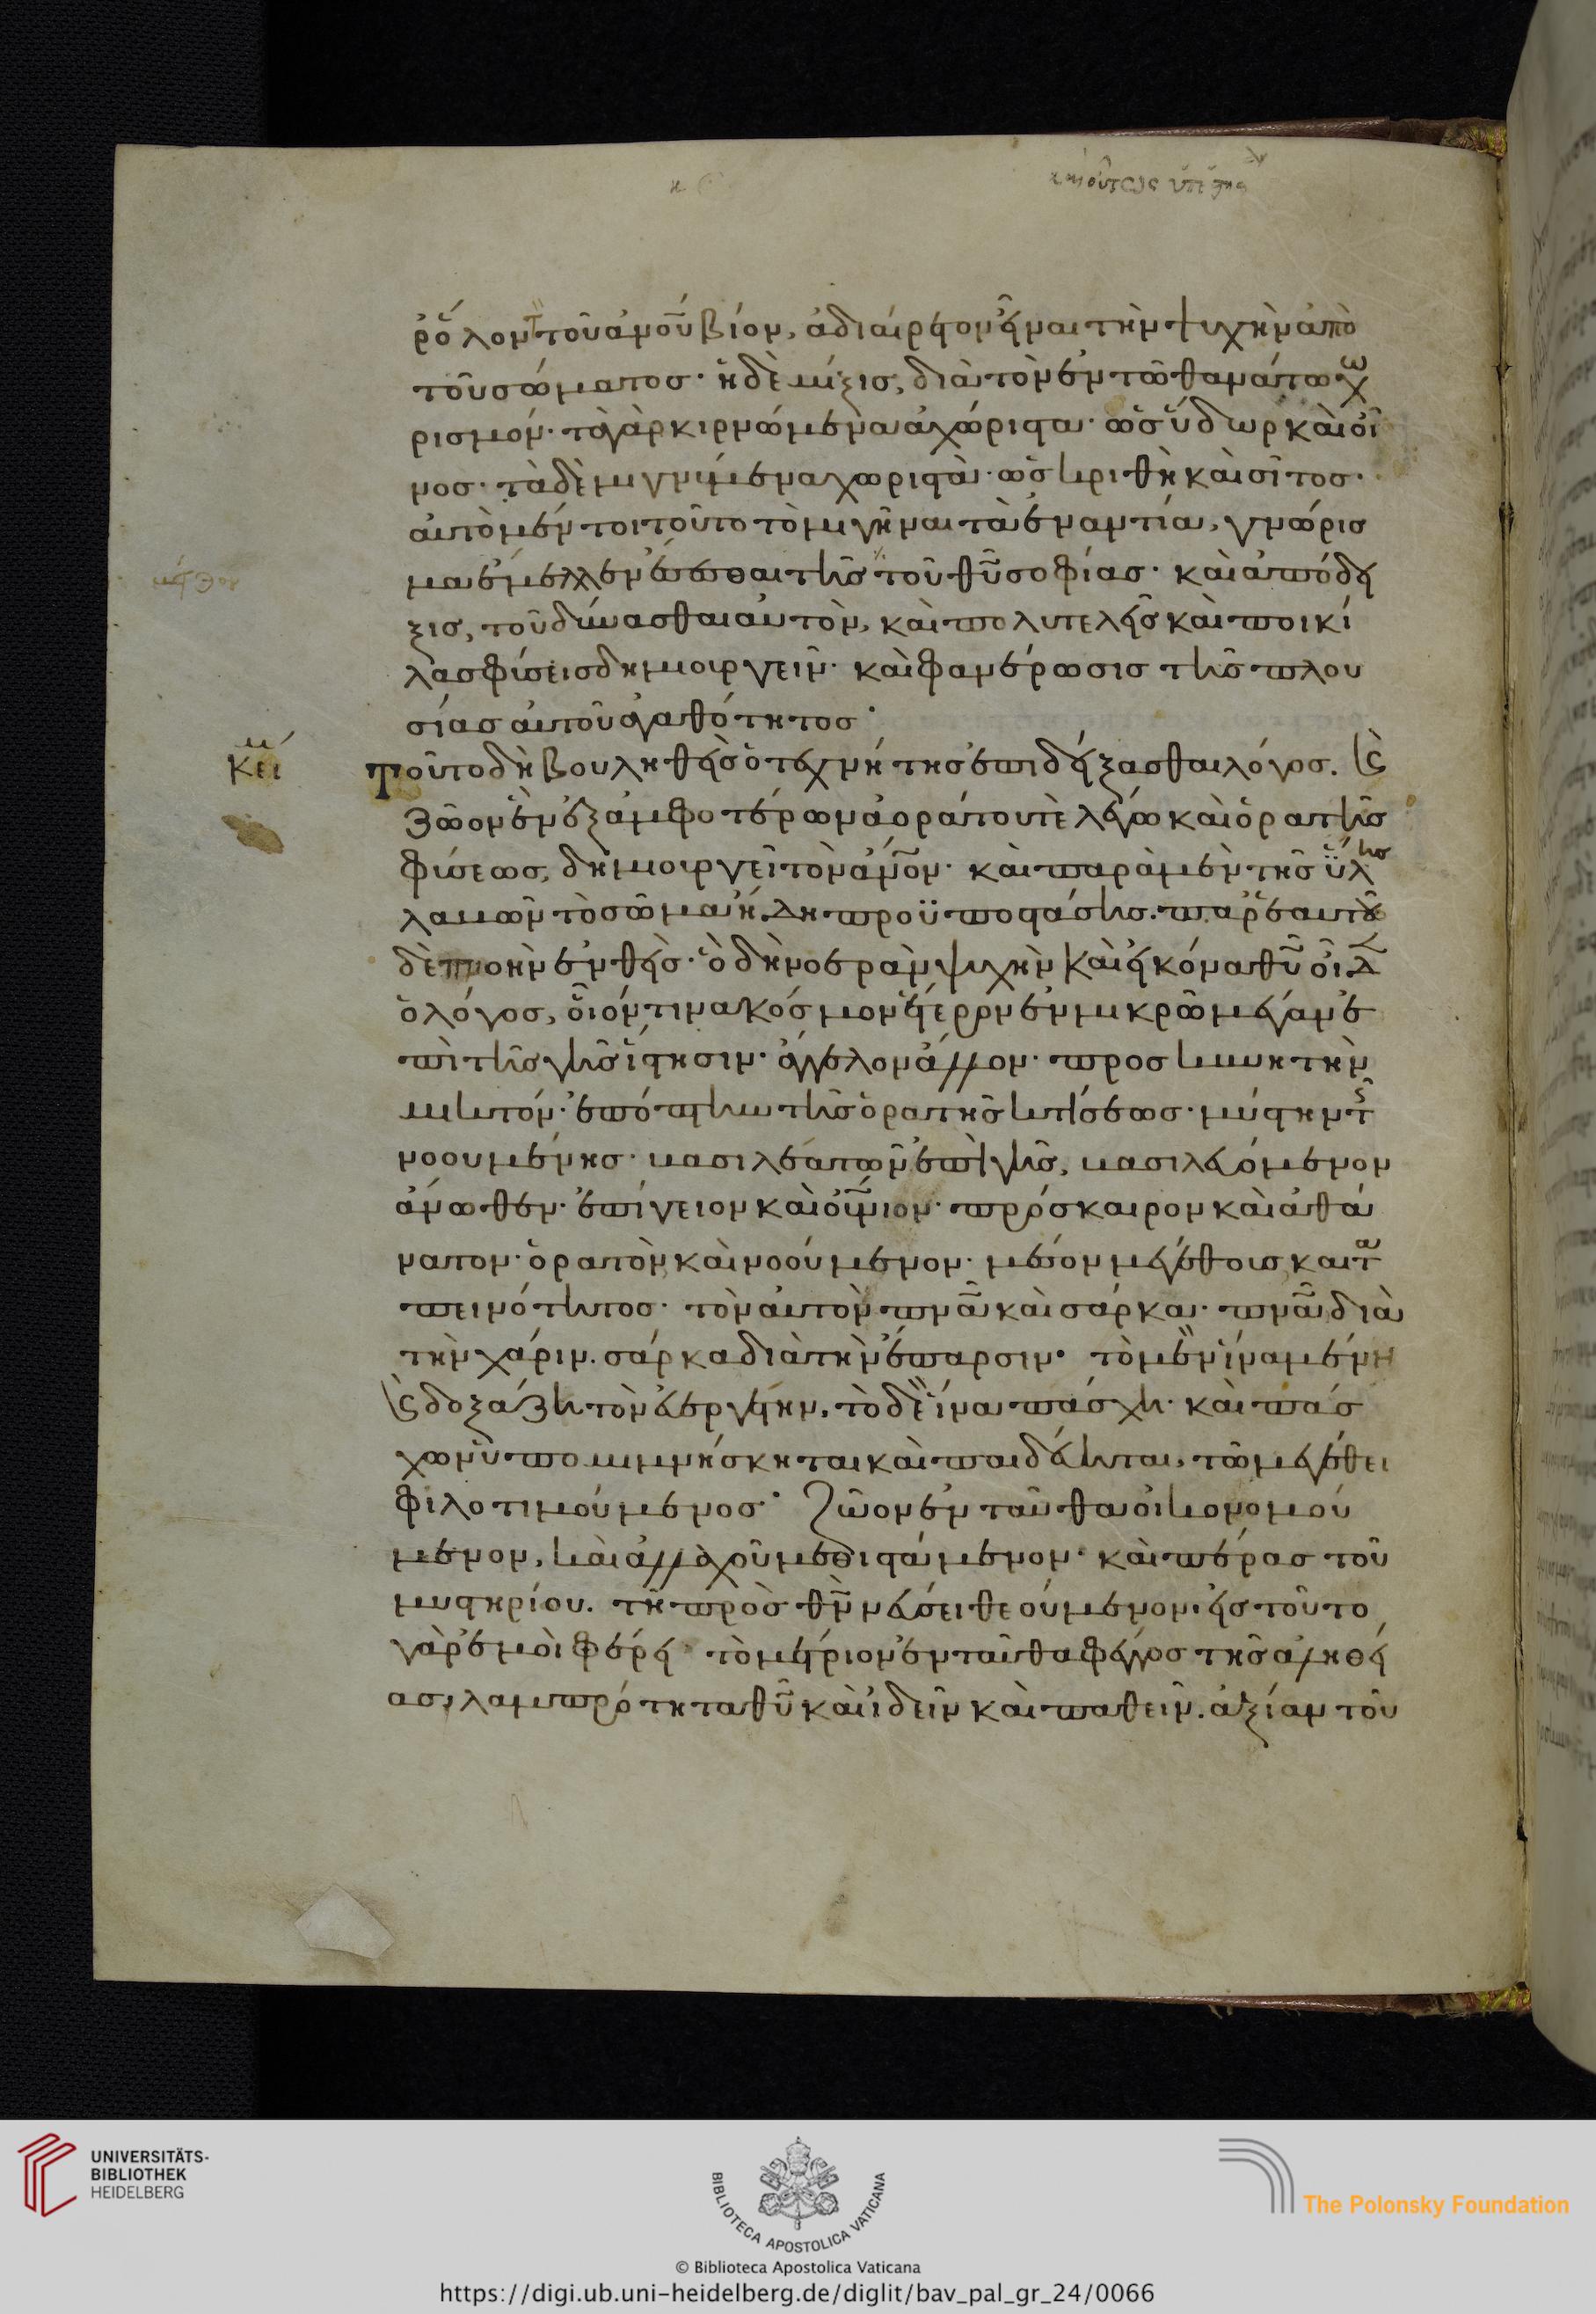 ρ ὅλον τοῦ ἀνου βίον, ἀδιαίρετον εἶναι τὴν ψυχὴν ἀπὸ
τοῦ σώματος· ἡ δὲ μίξις, διὰ τὸν ἐν τῶ θανάτω χω
ρισμόν· τὰ γὰρ κιρνώμενα ἀχώριστα· ὡς ὕδωρ καὶ οἶ
νος· τὰ δὲ μιγνύμενα χωριστὰ· ὡς κριθὴ καὶ σῖτος·
αὐτὸ μέν τοι τοῦτο τὸ μιγῆναι τὰ ἐναντία, γνώρισ
μα ἔμελλεν ἔσεσθαι τῆς τοῦ θυ σοφίας· καὶ ἀπόδει
ξις, τοῦ δύνασθαι αὐτὸν, καὶ πολυτελεῖς καὶ ποικί
λας φύσεις δημιουργεῖν· καὶ φανέρωσις τῆς πλου
σίας αὐτοῦ ἀγαθότητος·
κεί Τοῦτο δὴ βουληθεὶς ὁ τεχνίτης ἐπιδείξασθαι λόγος. κ(αὶ)
ζῶον ἓν ἐξ ἀμφοτέρων ἀοράτου τὲ λέγω καὶ ὁρατῆς
φύσεως, δημιουργεῖ τὸν ἄνον· καὶ παρὰ μὲν τῆς ὕλης
λαβὼν τὸ σῶμα ἤδη προϋποστάσης· παρ' ἑαυτοῦ
δὲ πνοὴν ἐνθεὶς· ὃ δὴ νοερὰν ψυχὴν καὶ εἰκόνα θυ οἶδεν
ὁ λόγος, οἷόν τινα κόσμον ἕτερον ἐν μικρῶ μέγαν ἐ
πὶ τῆς γῆς ἵστησιν· ἄγγελον ἄλλον· προσκυνητὴν
μικτόν· ἐπόπτην τῆς ὁρατῆς κτίσεως· μύστην τῆς
νοουμένης· βασιλέα τῶν ἐπὶ γῆς, βασιλευόμενον
ἄνωθεν· ἐπίγειον καὶ οὐνιον· πρόσκαιρον καὶ ἀθά
νατον· ὁρατὸν καὶ νοούμενον· μέσον μεγέθους καὶ τα
πεινότητος· τὸν αὐτὸν πνα καὶ σάρκα· πνα διὰ
τὴν χάριν. σάρκα διὰ τὴν ἔπαρσιν· τὸ μὲν ἵνα μένη
κ(αὶ) δοξάζη τὸν εὐεργέτην, τὸ δὲ ἵνα πάσχη· καὶ πάσ
χων ὑπομιμνήσκηται καὶ παιδεύηται, τῶ μεγέθει
φιλοτιμούμενος· ζῶον ἐνταῦθα οἰκονομού
μενον, καὶ ἀλλαχοῦ μεθιστάμενον· καὶ πέρας τοῦ
μυστηρίου. τῆ πρὸς θν νεύσει θεούμενον· εἰς τοῦτο
γὰρ ἐμοὶ φέρει τὸ μέτριον ἐνταῦθα φέγγος τῆς ἀληθεί
ας, λαμπρότητα θυ καὶ ἰδεῖν καὶ παθεῖν. ἀξίαν τοῦ
UNIVERSITÄTS-
BIBLIOTHEK
HEIDELBERG
BIBLIOTECA APOSTOLICA VATICANA
© Biblioteca Apostolica Vaticana
The Polonsky Foundation
https://digi.ub.uni-heidelberg.de/diglit/bav_pal_gr_24/0066